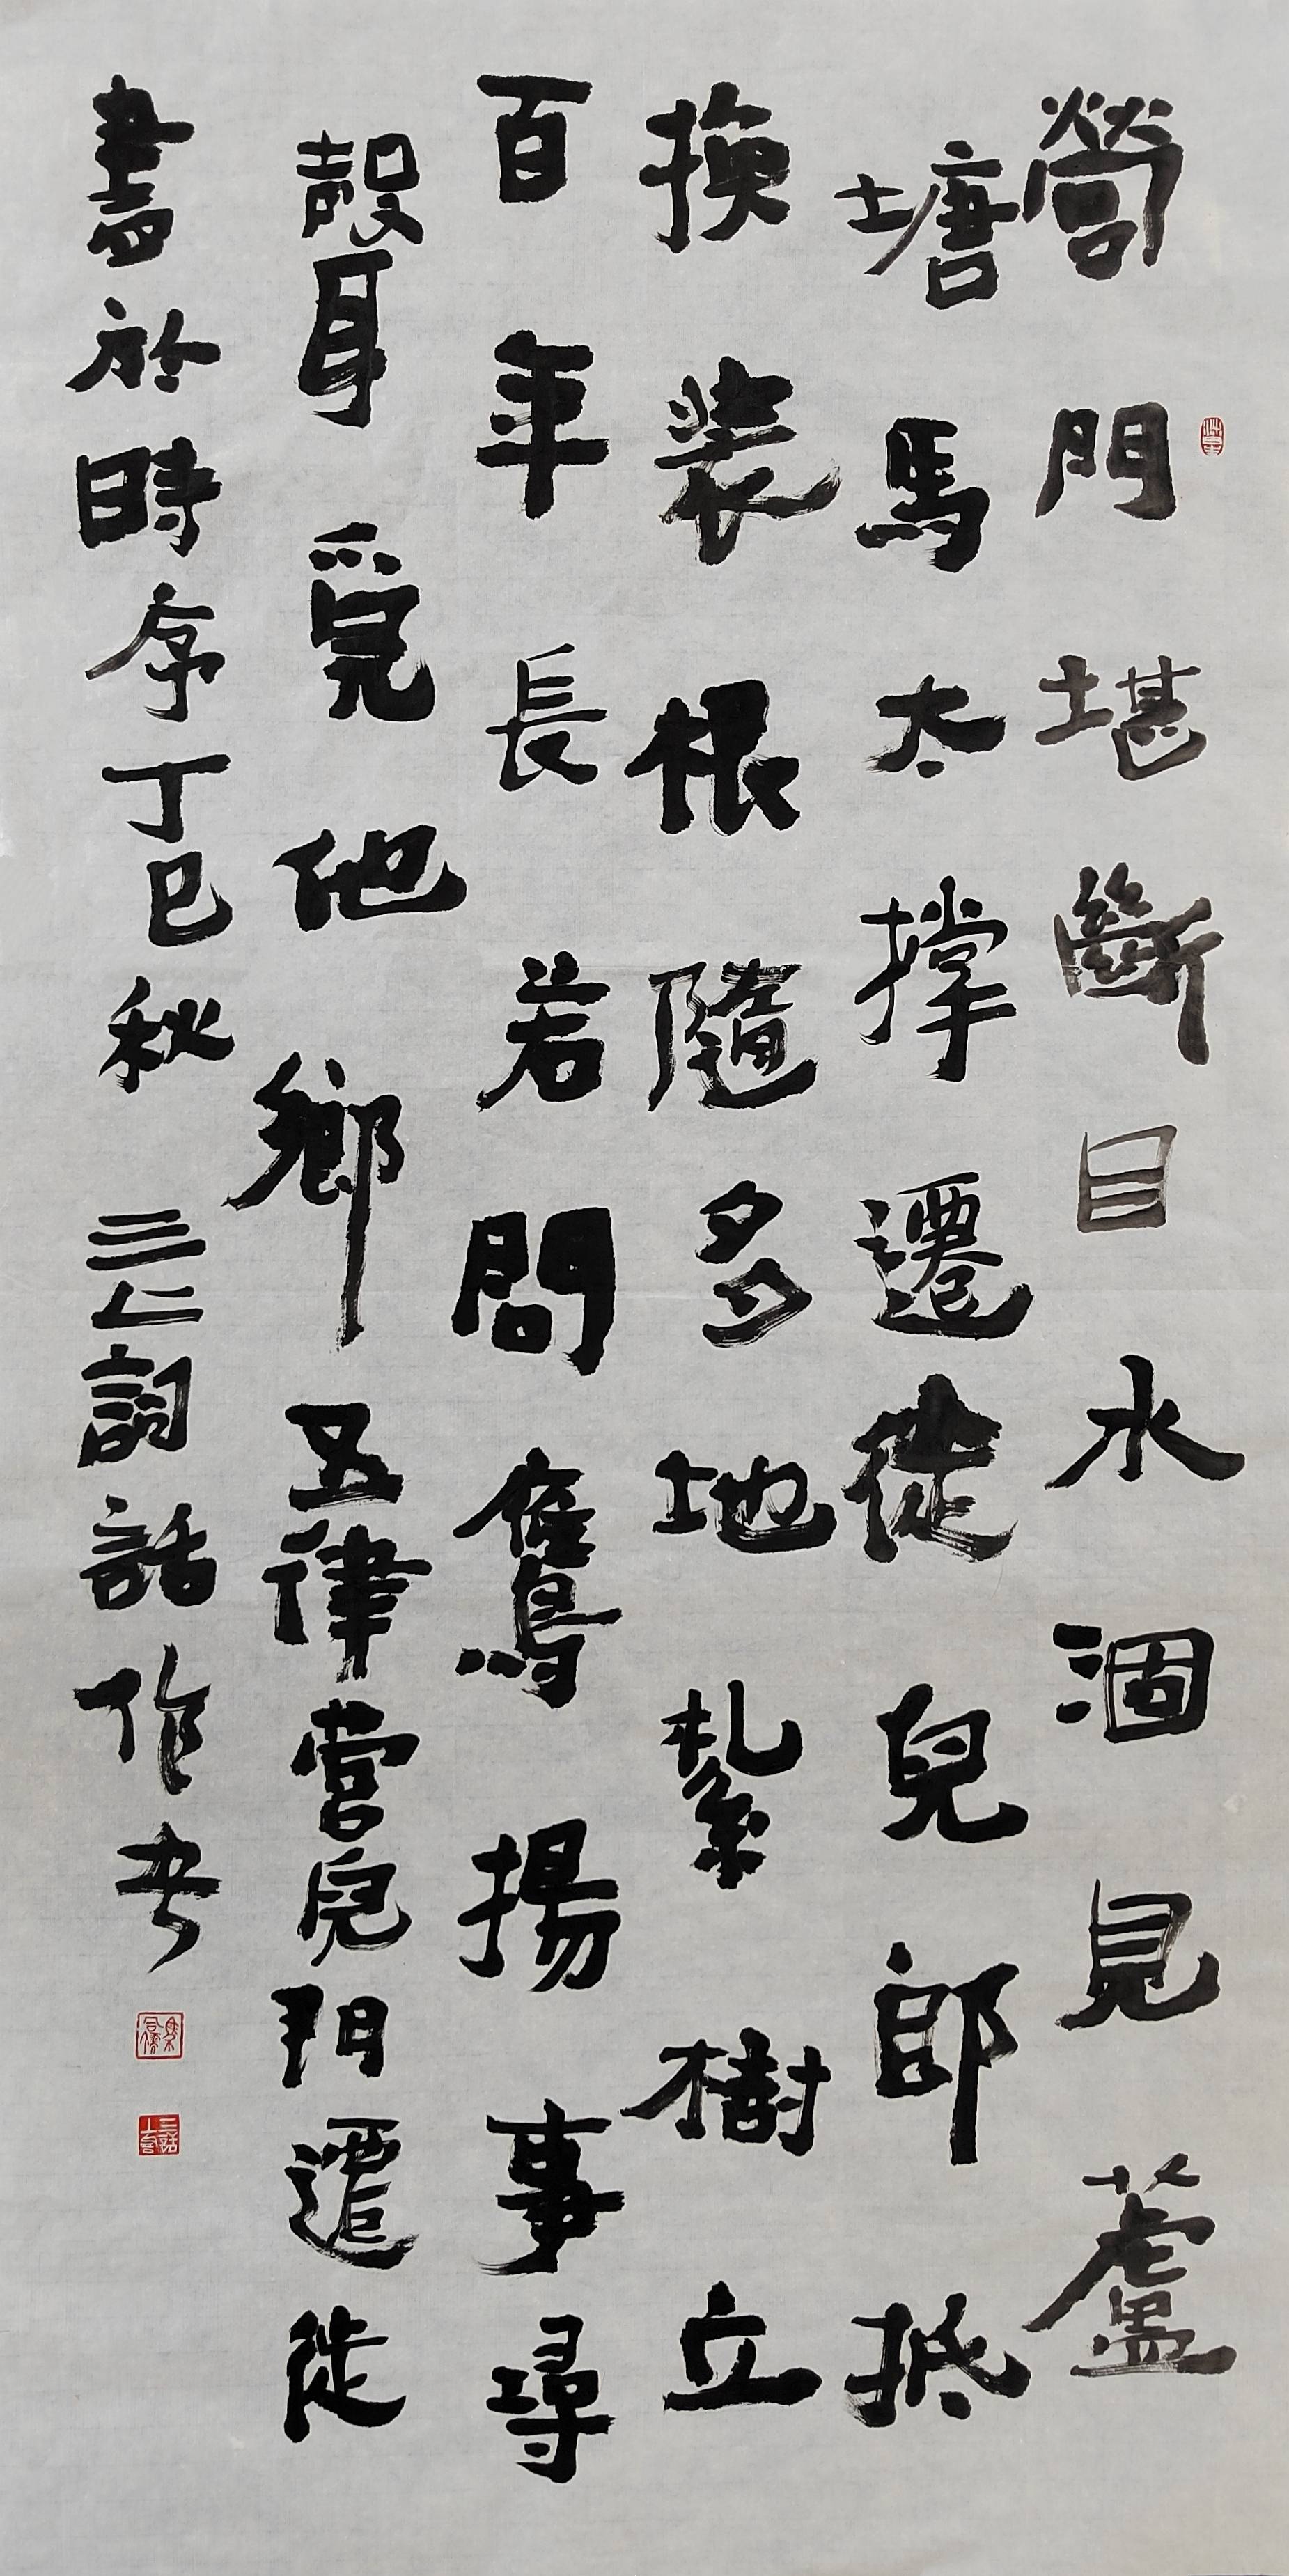 營門堪斷目水涸見蘆
塘馬太撐遷徙兒郎抵
換裝根隨多地紮樹立
百年長若問鷹揚事尋
聲覓他鄉五律營門遷徙
書於時序丁巳秋三上詞話作书